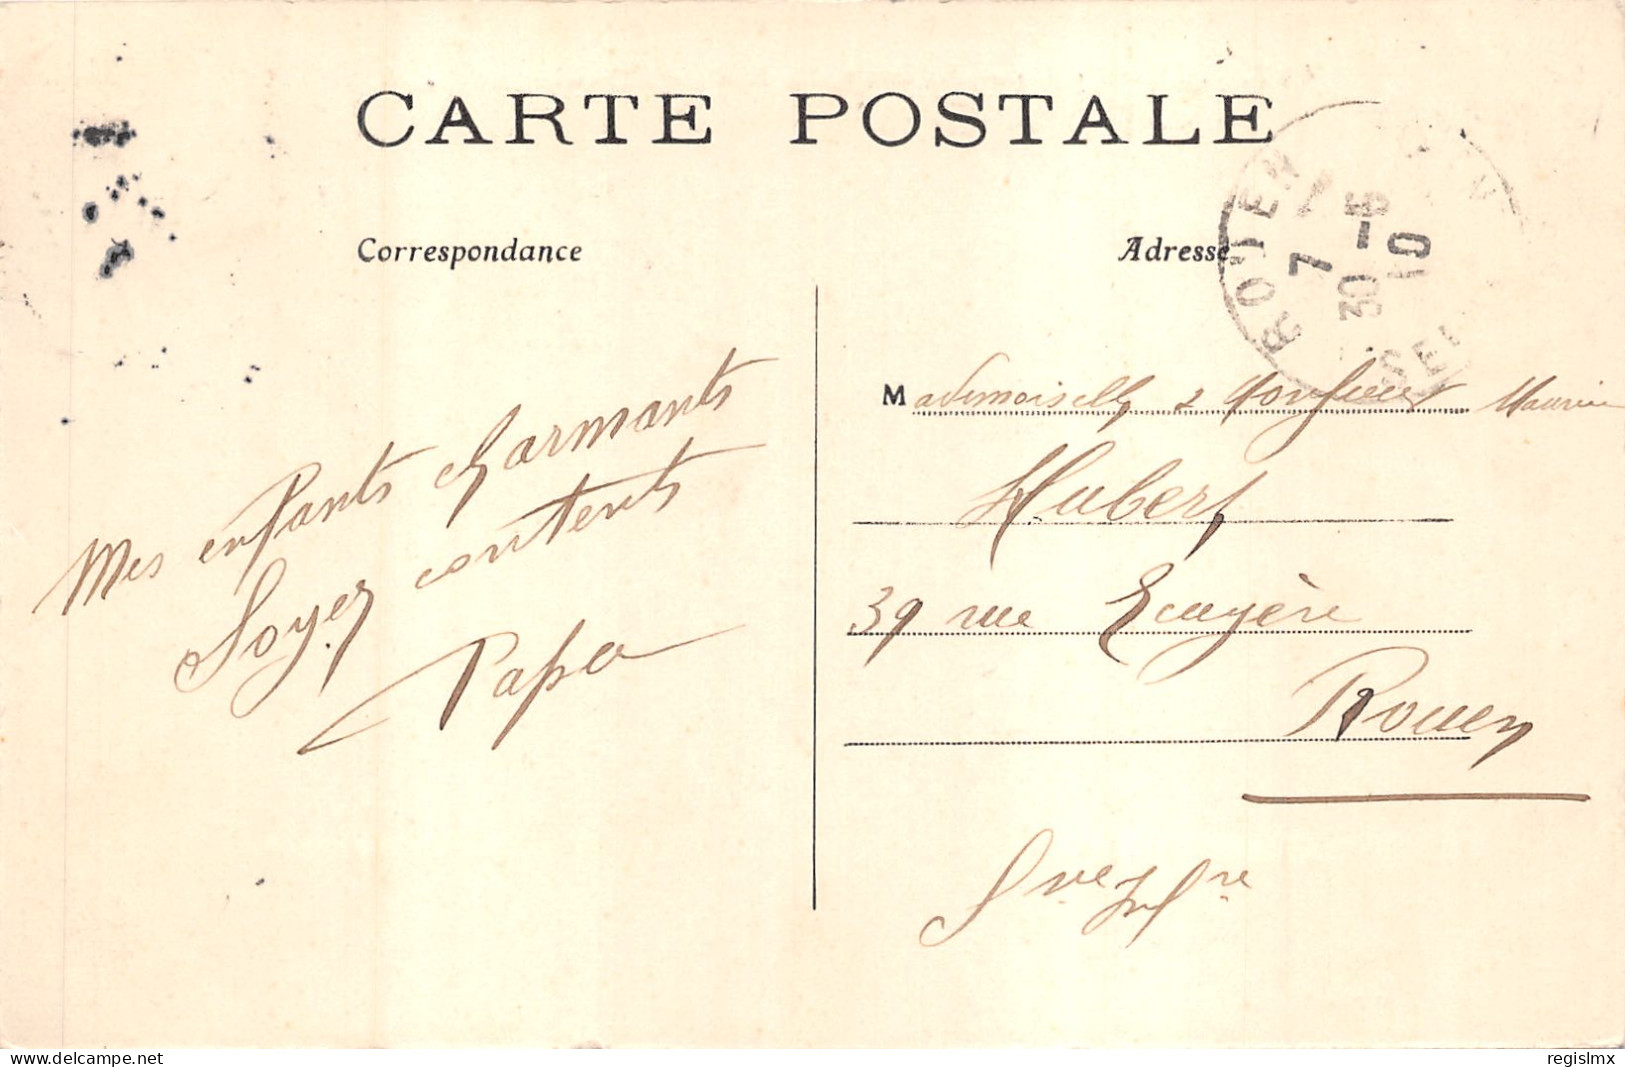 CARTE POSTALE
Correspondance
Adresse
ROUEN
7
30 - 5
10
Mes enfants charmants
Soyez contents
Papa
Mademoiselle & Monsieur Maurice
Hubert
39 rue Ecuyère
Rouen
Sne Infre
delcampe.net
regislmx